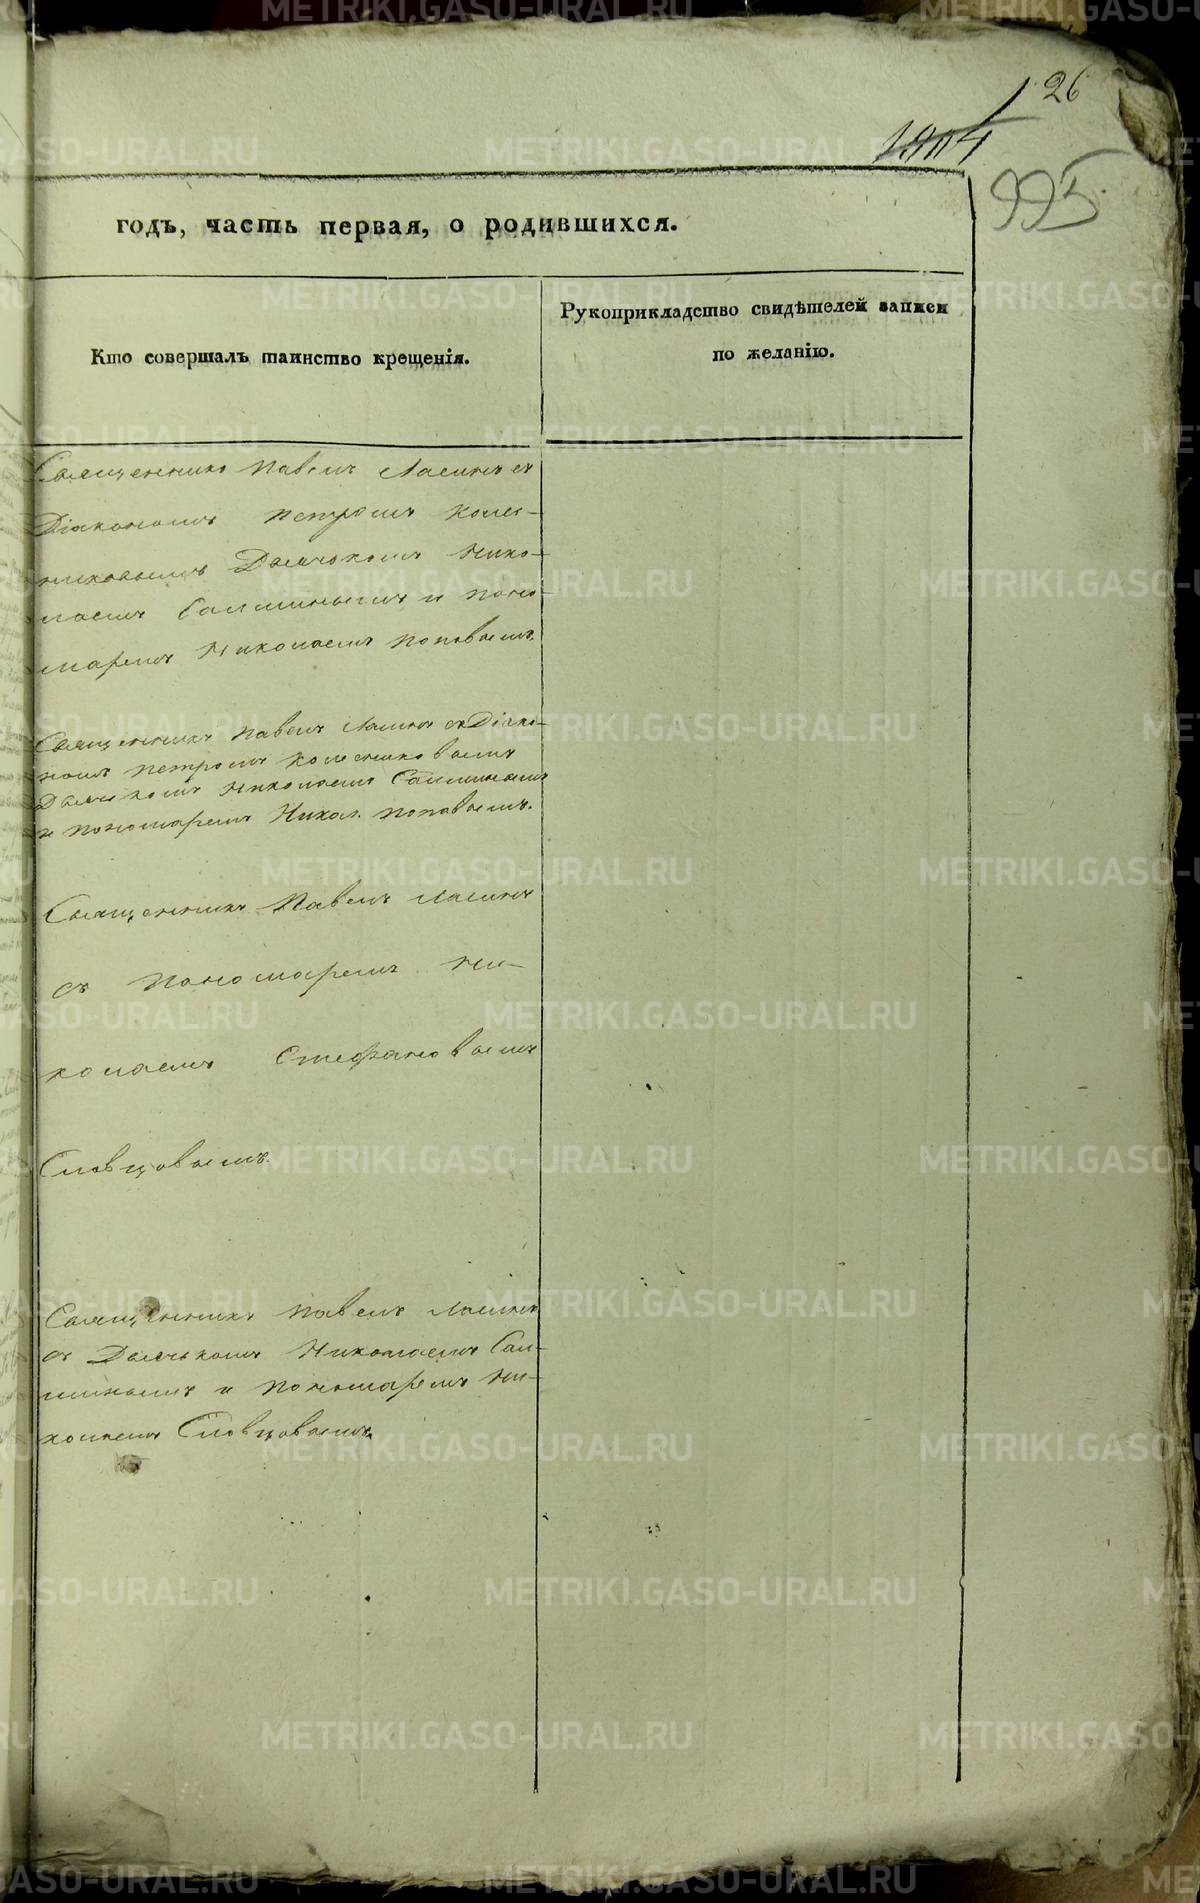 26
1904
995
годъ, часть первая, о родившихся.
Кто совершалъ таинство крещенія.
Рукоприкладство свидѣтелей записи
по желанію.
Священникъ Павелъ Ляпинъ съ
Діакономъ Петромъ Колес-
никовымъ Дьячкомъ Нико-
лаемъ Сапшинымъ и поно-
маремъ Николаемъ Поповымъ.
Священникъ Павелъ Ляпинъ съ Діако-
номъ Петромъ Колесниковымъ
Дьячкомъ Николаемъ
и пономаремъ Никол. Поповымъ.
Священникъ Павелъ Ляпинъ
съ Пономаремъ Ни-
колаемъ Стефановымъ
Словцовымъ.
Священникъ Павелъ Ляпинъ
съ Дьячкомъ Николаемъ
и Пономаремъ Ни-
колаемъ Словцовымъ.
METRIKI.GASO-URAL.RU